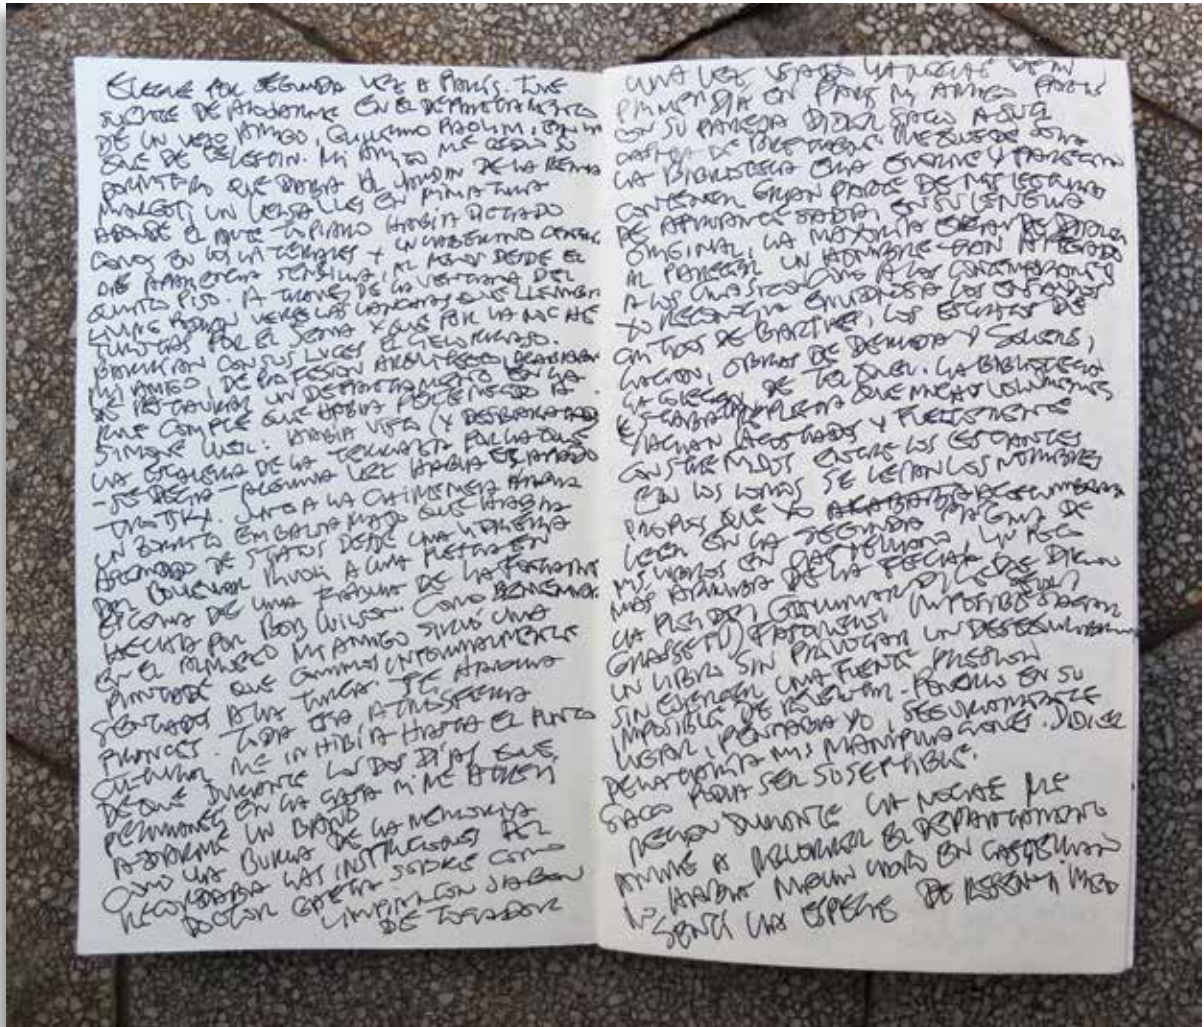 LLEGUÉ POR SEGUNDA VEZ A PARÍS. TUVE
SUERTE DE ALOJARME EN EL DEPARTAMENTO
DE UN VIEJO AMIGO, GUILLERMO PAOLINI,
QUE DE CELESTIN. MI AMIGO ME CEDIÓ SU
QUE DABA AL JARDIN DE LA REINA
MARGOT, UN VERSALLES EN MINIATURA
ADONDE EL ARTE TOPIARIO HABÍA DEJADO
CONOS EN LOS LATERALES Y UN LABERINTO CENTRAL
DE APARIENCIA SENCILLA, AL MENOS DESDE EL
QUINTO PISO. A TRAVES DE LA VENTANA DEL
LIVING PODÍAN VERSE LAS LANCHAS QUE LLEVABAN
TURISTAS POR EL SENA Y QUE POR LA NOCHE
CON SUS LUCES EL CIELO RASO.
MI AMIGO, DE PROFESIÓN ARQUITECTO, ACABABA
DE RESTAURAR UN DEPARTAMENTO EN LA
RUE QUE HABÍA PERTENECIDO A
SIMONE WEIL: HABÍA VISTO (Y DESBARATADO)
LA ESCALERA DE LA TERRAZA POR LA QUE
-SE DECÍA- ALGUNA VEZ HABÍA ESCAPADO
TROTSKY. JUNTO A LA CHIMENEA HABÍA
UN BURRITO EMBALSAMADO QUE HABÍA
DE STATUS DESDE UNA VIDRIERA
DEL RIVOLI A UNA PUESTA EN
ESCENA DE UNA FÁBULA DE LA FONTAINE
HECHA POR BOB WILSON. COMO
EN EL ALMUERZO MI AMIGO SIRVIÓ UNA
PINTADE QUE COMIMOS INFORMALMENTE
SENTADOS A LA TURCA.
TODA ESA ATMOSFERA
CULTURAL ME INHIBÍA HASTA EL PUNTO
DE QUE DURANTE LOS DOS DÍAS QUE
PERMANECÍ EN LA CASA NI ME ATREVÍ
A DARME UN BAÑO
COMO UNA BURLA DE LA MEMORIA
RECORDABA LAS INSTRUCCIONES DEL
DOCTOR SOBRE COMO
LIMPIAR CON JABON
DE TOCADOR
UNA VEZ LA NOCHE DE MI
PRIMER DÍA EN PARIS MI AMIGO PARTIÓ
CON SU PAREJA DIDIER SACO A SU
CASITA DE BRETAÑA. ME QUEDÉ SOLA
LA BIBLIOTECA ERA ENORME Y PARECÍA
CONTENER GRAN PARTE DE MIS LECTURAS
DE EN SU LENGUA
ORIGINAL, LA MAYORÍA ERAN DE DIDIER
AL PARECER UN HOMBRE TAN APEGADO
A LOS CLASICOS COMO A LOS CONTEMPORANEOS
YO RECONOCÍA ENVIDIOSA LOS ENSAYOS
CRITICOS DE BARTHES, LOS ESCRITOS DE
LACAN, OBRAS DE DERRIDA Y SOLLERS,
DE TEL QUEL. LA BIBLIOTECA
ESTABA REPLETA QUE MUCHOS VOLUMENES
ACOSTADOS Y FUERTEMENTE
CONSTREÑIDOS ENTRE LOS ESTANTES
EN LOS LOMOS SE LEÍAN LOS NOMBRES
PROPIOS QUE YO ACOSTUMBRABA
LEER EN LA SEGUNDA PAGINA DE
MIS LIBROS EN CASTELLANO, UN POCO
MAS ARRIBA DE LA FECHA DE EDICION
GALLIMARD, DE SEUIL
GRASSET IMPOSIBLE SACAR
UN LIBRO SIN PROVOCAR UN
SIN EJERCER UNA FUERTE PRESION
IMPOSIBLE DE PONERLO EN SU
LUGAR, PENSABA YO, SEGURAMENTE
DELATARÍA MIS MANIPULACIONES. DIDIER
SACO PODÍA SER SUSEPTIBLE.
RECIEN DURANTE LA NOCHE ME
ANIMÉ A RECORRER EL DEPARTAMENTO
NO HABÍA NINGUN LIBRO EN CASTELLANO
SENTÍ UNA ESPECIE DE